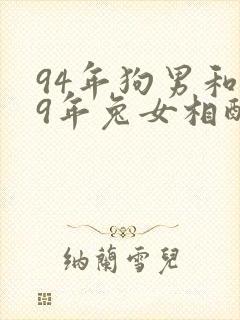 94年狗男和
9年兔女相配
纳蘭雪兒